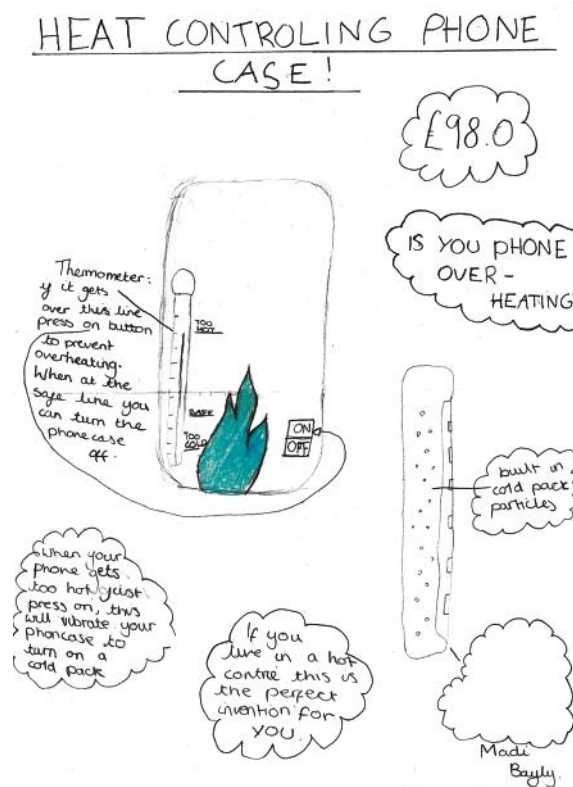 HEAT CONTROLING PHONE
CASE!
£98.0
IS YOU PHONE
OVER-
HEATING
Thermometer:
if it gets
over this line
press on button
to prevent
overheating.
When at the
safe line you
can turn the
phonecase
off.
TOO
HOT
SAFE
TOO
COLD
ON
OFF
built in
cold pack
particles
When your
phone gets
too hot just
press on, this
will vibrate your
phoncase to
turn on a
cold pack
If you
live in a hot
contre this is
the perfect
invention for
YOU.
Madi
Bayly.